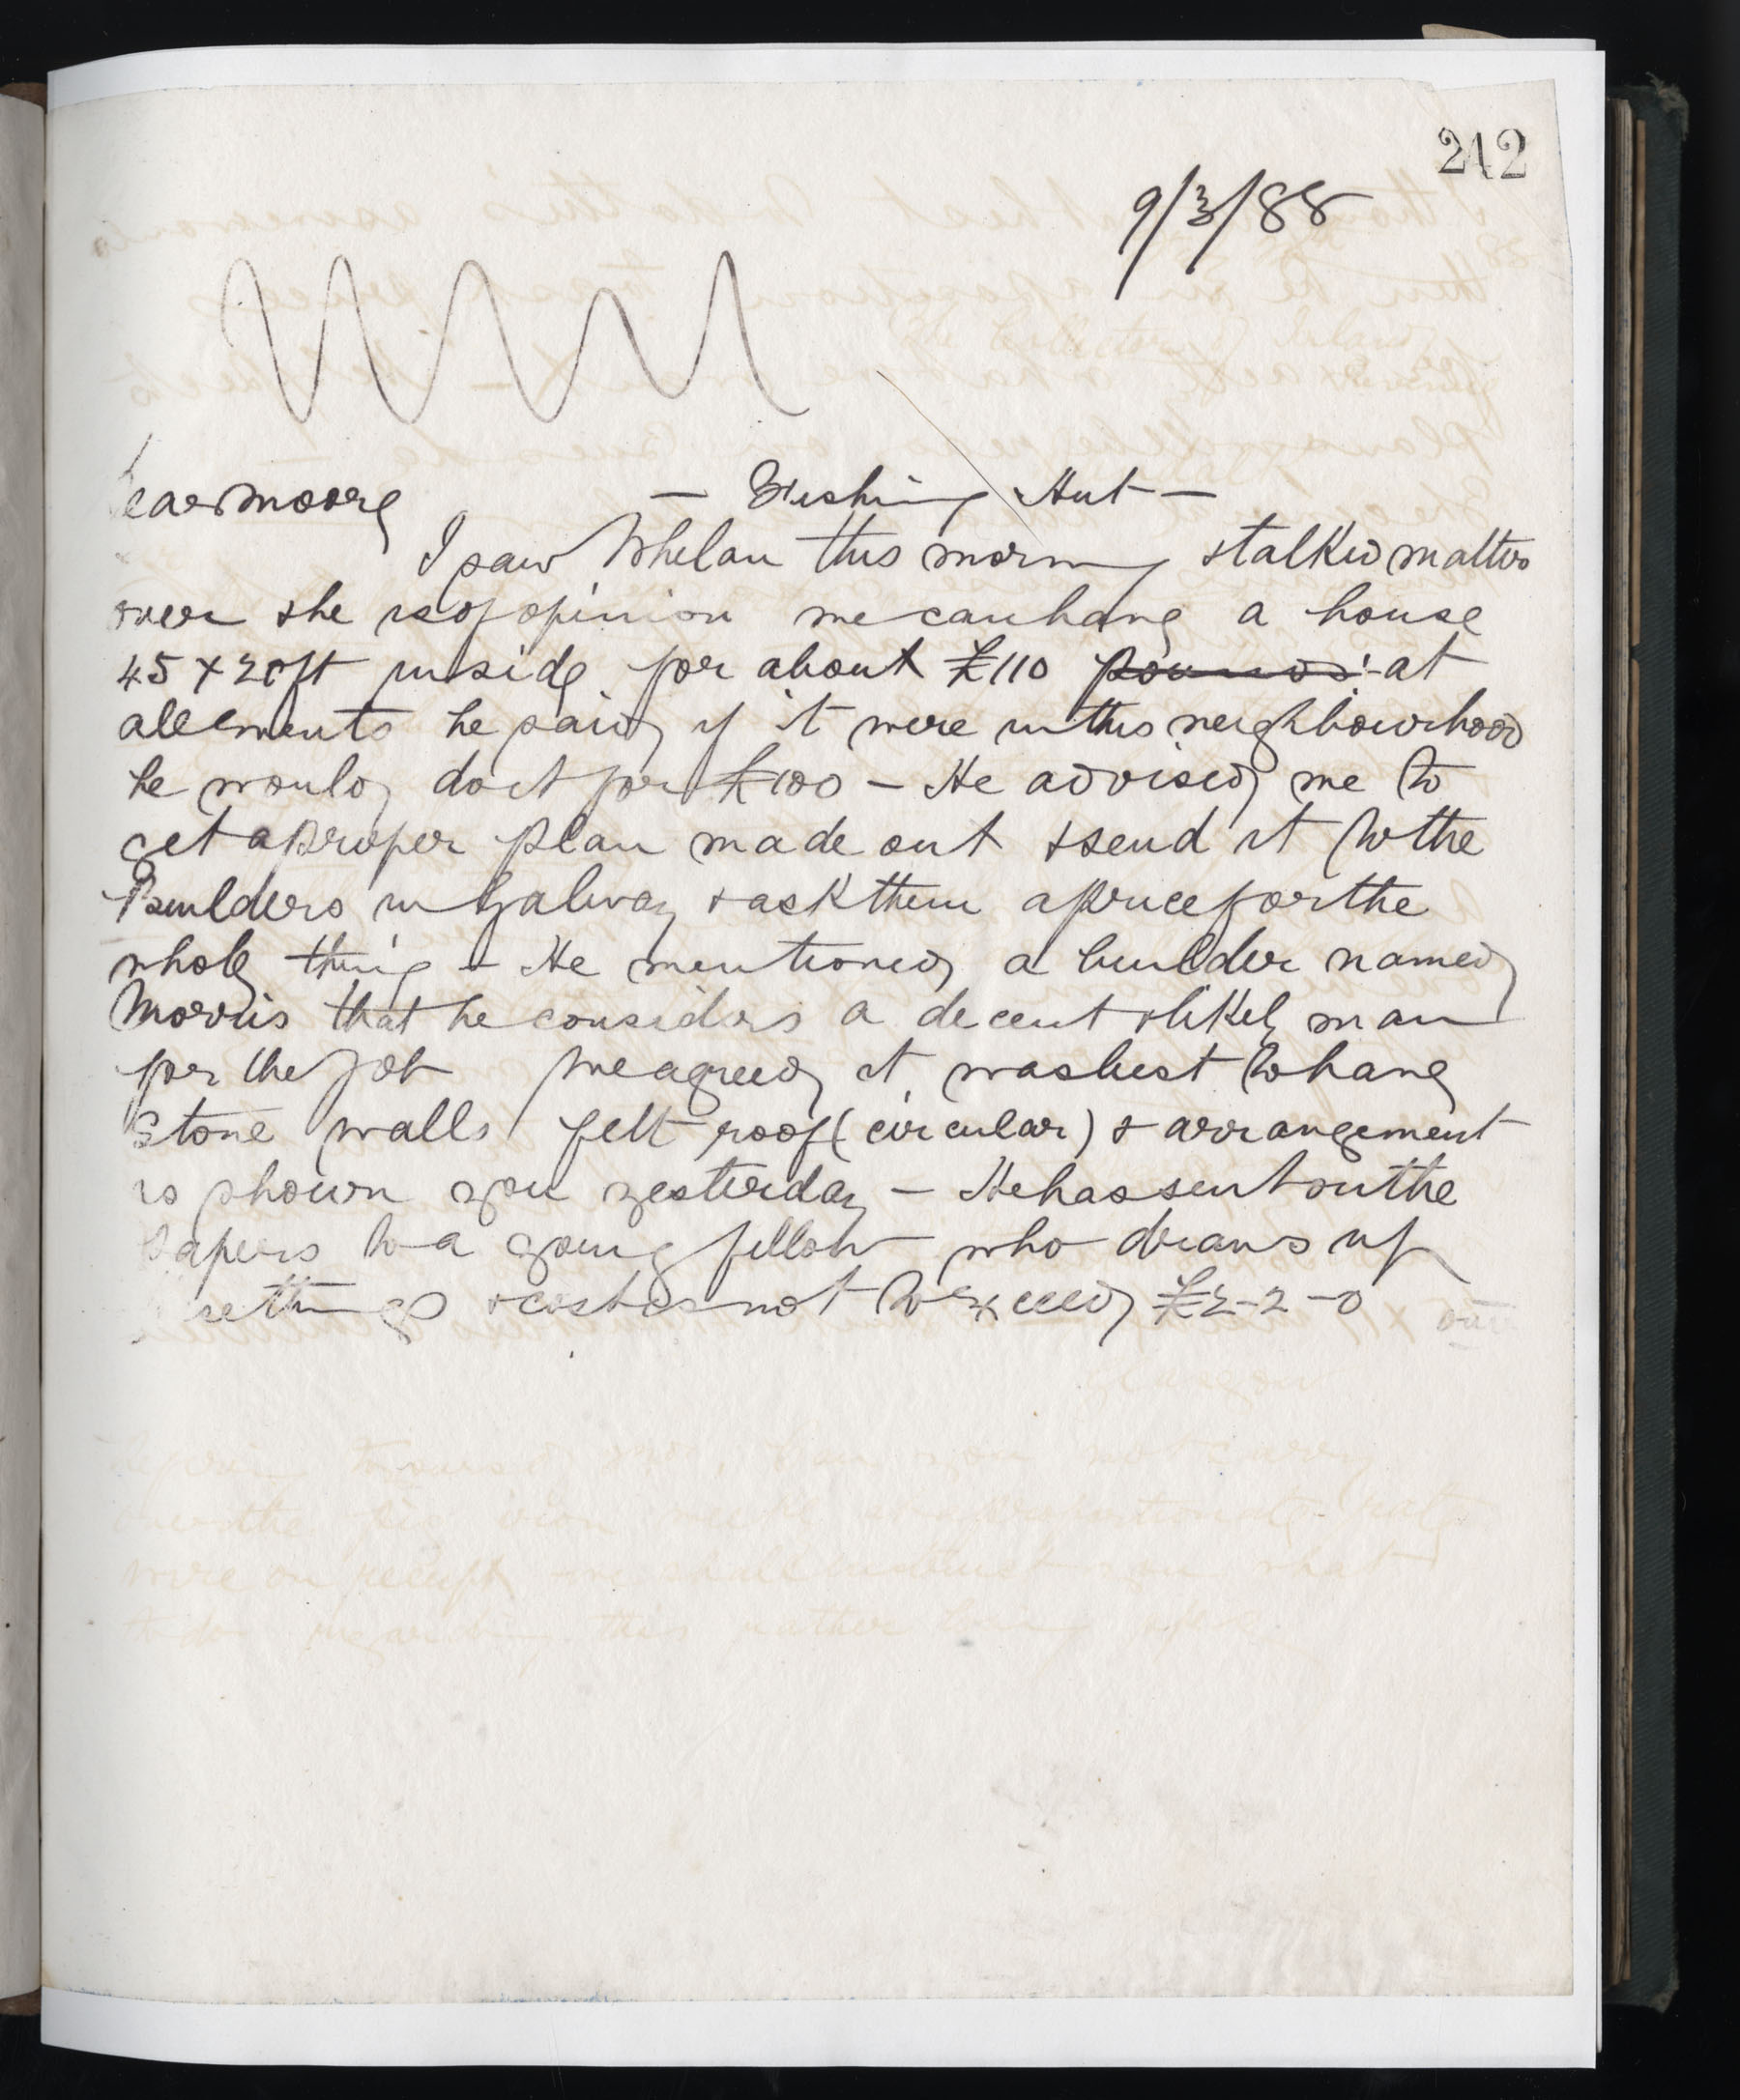 242
9/3/88
Dear Moore — Fishing Hut —
I saw Whelan this morning & talked matters
over & he is of opinion we can have a house
45 x 20ft inside for about £110 pounds - at
all events he said if it were in this neighbourhood
he would do it for £100 – He advised me to
get a proper plan made out & send it to the
Builders in Galway & ask them a price for the
whole thing – He mentioned a builder named
Morris that he considers a decent & likely man
for the job we agreed it was best to have
Stone walls felt roof (circular) & arrangement
as shown you yesterday – He has sent on the
papers to a young fellow who draws up
& cost is not to exceed £2-2-0